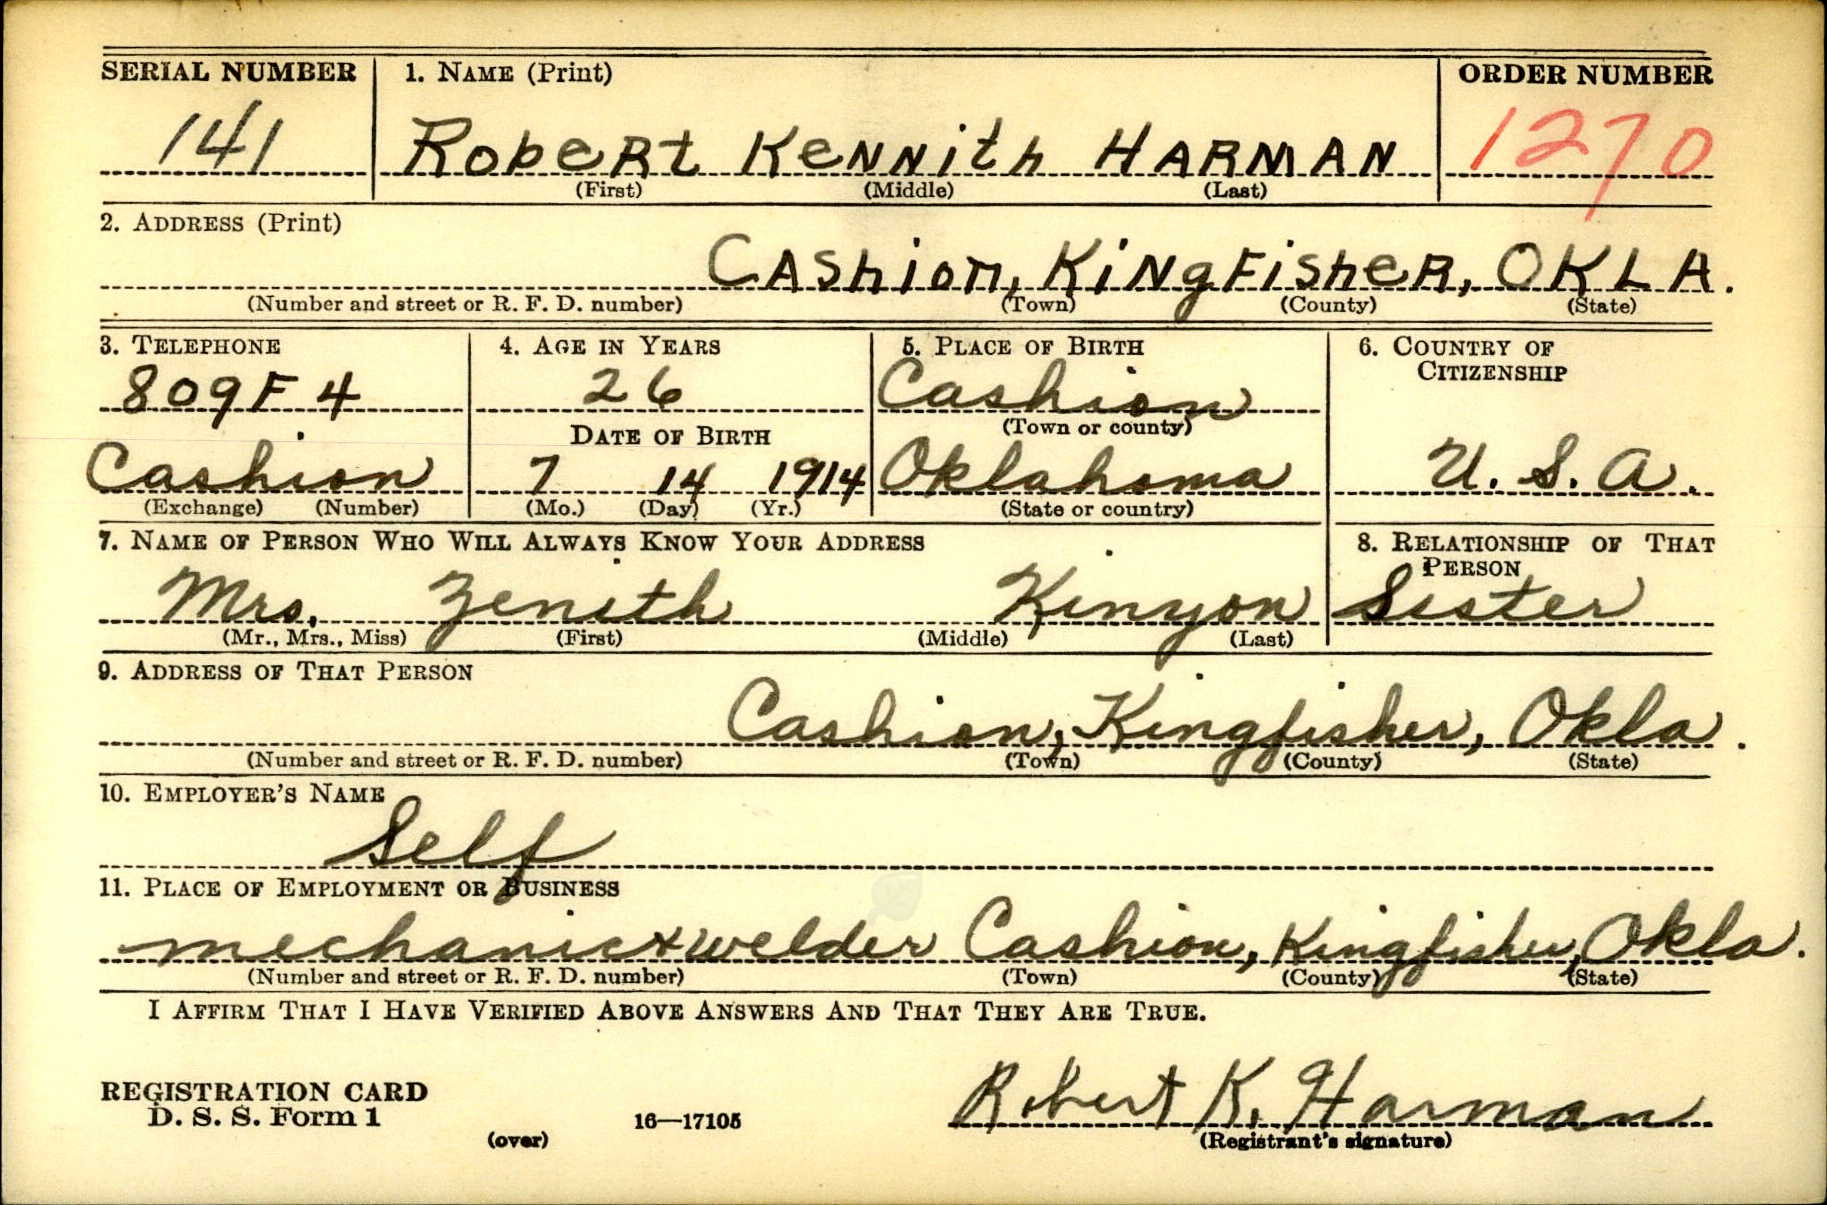 SERIAL NUMBER 1. NAME (Print) ORDER NUMBER
141 Robert Kennith Harman 1270
(First) (Middle) (Last)
2. ADDRESS (Print)
Cashion, Kingfisher, OKLA.
(Number and street or R. F. D. number) (Town) (County) (State)
3. TELEPHONE 4. AGE IN YEARS 5. PLACE OF BIRTH 6. COUNTRY OF
CITIZENSHIP
809F4 26 Cashion
DATE OF BIRTH (Town or county)
Cashion 7 14 1914 Oklahoma U. S. A.
(Exchange) (Number) (Mo.) (Day) (Yr.) (State or country)
7. NAME OF PERSON WHO WILL ALWAYS KNOW YOUR ADDRESS 8. RELATIONSHIP OF THAT
PERSON
Mrs. Zenith Kinyon Sister
(Mr., Mrs., Miss) (First) (Middle) (Last)
9. ADDRESS OF THAT PERSON
Cashion, Kingfisher, Okla.
(Number and street or R. F. D. number) (Town) (County) (State)
10. EMPLOYER'S NAME
Self
11. PLACE OF EMPLOYMENT OR BUSINESS
mechanic & welder Cashion, Kingfisher, Okla.
(Number and street or R. F. D. number) (Town) (County) (State)
I AFFIRM THAT I HAVE VERIFIED ABOVE ANSWERS AND THAT THEY ARE TRUE.
REGISTRATION CARD Robert K. Harman
D. S. S. Form 1 16—17105
(over) (Registrant's signature)